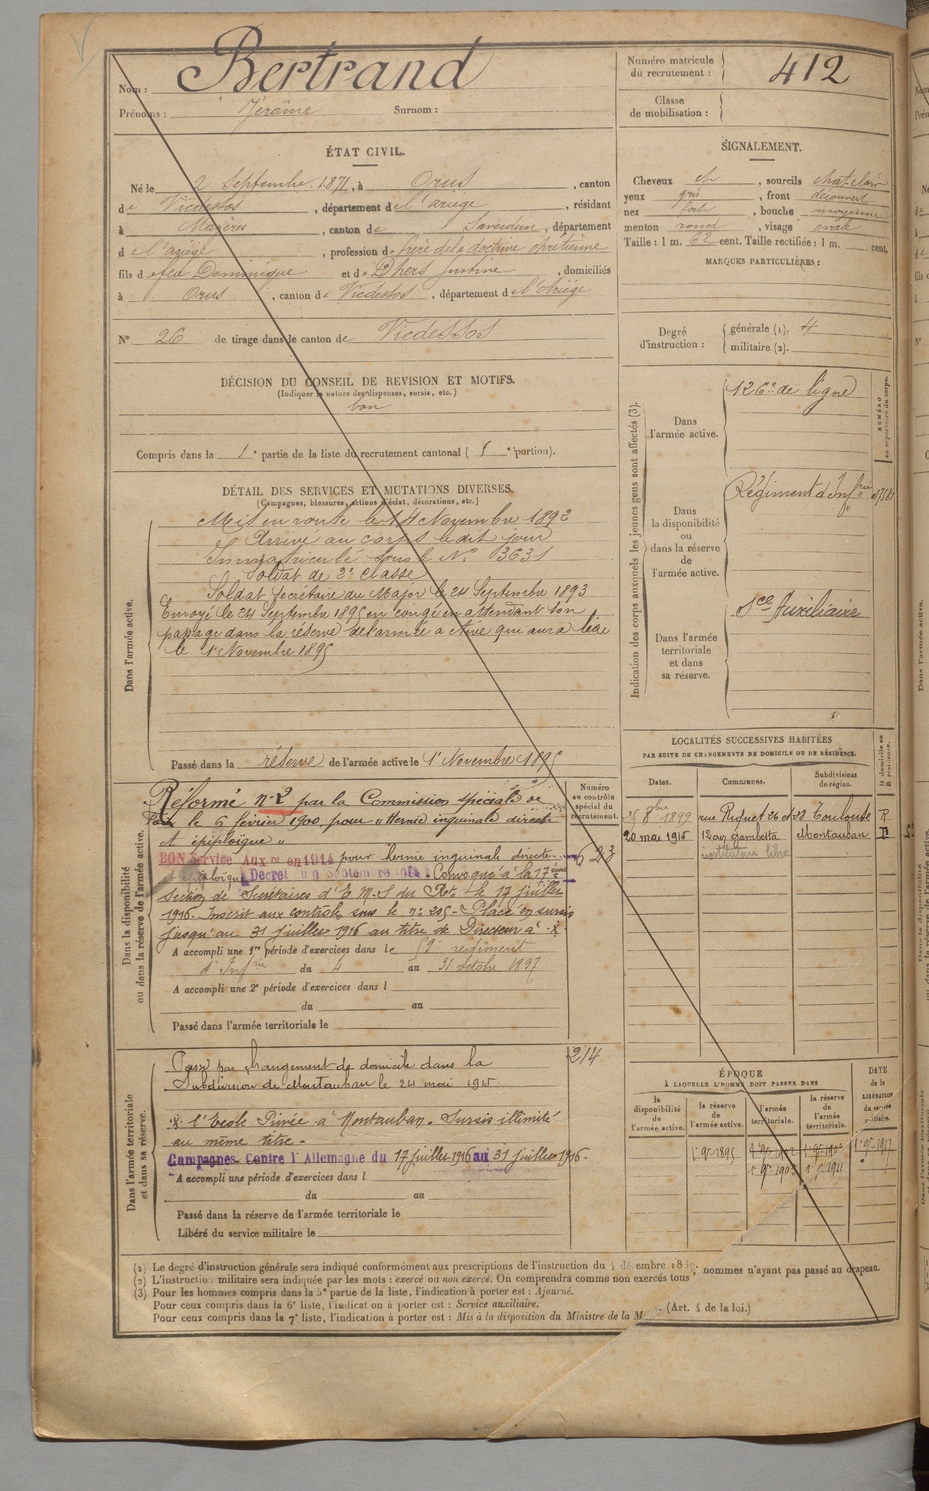 Nom : Bertrand
Prénoms : Jérôme Surnom :
Numéro matricule du recrutement : 412
Classe de mobilisation :
ÉTAT CIVIL.
Né le 2 Septembre 1871, à Orus, canton
de Vicdessos, département de l'ariège, résidant
à Mazères, canton de Saverdun, département
de l'ariège, profession de frère de la doctrine chrétienne
fils de feu Dominique et de Dhers Justine, domiciliés
à Orus, canton de Vicdessos, département de l'Ariège
N° 26 de tirage dans le canton de Vicdessos
SIGNALEMENT.
Cheveux ch, sourcils chat. clair
yeux gris, front découvert
nez fort, bouche moyenne
menton rond, visage ovale
Taille : 1 m. 62 cent. Taille rectifiée : 1 m. cent.
MARQUES PARTICULIÈRES :
Degré d'instruction : générale (1). 4
militaire (2).
DÉCISION DU CONSEIL DE REVISION ET MOTIFS.
(Indiquer la nature des dispenses, sursis, etc.)
bon
Compris dans la 1e partie de la liste du recrutement cantonal ( 1e portion).
DÉTAIL DES SERVICES ET MUTATIONS DIVERSES.
(Campagnes, blessures, actions d'éclat, décorations, etc.)
Dans l'armée active.
Mis en route le 14 Novembre 1892
Arrivé au corps le dit jour
Immatriculé sous le N° 3631
Soldat de 2e classe
Soldat Secrétaire du Major le 24 Septembre 1893
Envoyé le 24 Septembre 1895 en congé en attendant son
passage dans la réserve de l'armée active qui aura lieu
le 1er Novembre 1895
Passé dans la réserve de l'armée active le 1er Novembre 1895
Indication des corps auxquels les jeunes gens sont affectés (3).
NUMÉRO au répertoire du corps.
Dans l'armée active.
126e de ligne
Dans la disponibilité ou dans la réserve de l'armée active.
Régiment d'Infrie
Dans l'armée territoriale et dans sa réserve.
Sce Auxiliaire
Dans la disponibilité ou dans la réserve de l'armée active.
Numéro au contrôle spécial du recrutement.
Réformé n° 2 par la Commission spéciale de
Foix le 6 février 1900 pour "Hernie inguinale directe
et épiploïque"
BON Service Auxre en 1914 pour hernie inguinale directe
Décret du 9 Septembre 1914 Convoqué à la 17ème
section de Secrétaires d'E.M. le 17 juillet
1916. Inscrit aux contrôles sous le n° 205. Placé en sursis
jusqu'au 31 juillet 1916 au titre de Directeur à X
623
A accompli une 1re période d'exercices dans le 59e régiment
d'Infrie du 4 au 31 octobre 1897
A accompli une 2e période d'exercices dans l
du au
Passé dans l'armée territoriale le
LOCALITÉS SUCCESSIVES HABITÉES
PAR SUITE DE CHANGEMENTS DE DOMICILE OU DE RÉSIDENCE.
Dates. Communes. Subdivisions de région. D domicile ou R résidence.
25 8bre 1899 rue Riquet 26 et 28 Toulouse R
20 mai 1915 12 av. gambetta Montauban D
instituteur libre
Dans l'armée territoriale et dans sa réserve.
214
Passé par changement de domicile dans la
Subdivision de Montauban le 24 mai 1915
X l'Ecole Privée à Montauban. Sursis illimité
au même titre.
Campagnes Contre l'Allemagne du 17 juillet 1916 au 31 juillet 1916
A accompli une période d'exercices dans l
du au
Passé dans la réserve de l'armée territoriale le
Libéré du service militaire le
ÉPOQUE
À LAQUELLE L'HOMME DOIT PASSER DANS
la disponibilité de l'armée active. la réserve de l'armée active. l'armée territoriale. la réserve de l'armée territoriale.
DATE de la LIBÉRATION du service militaire.
(1) Le degré d'instruction générale sera indiqué conformément aux prescriptions de l'instruction du
(2) L'instruction militaire sera indiquée par les mots : exercé ou non exercé. On comprendra comme non exercés tous hommes n'ayant pas passé au drapeau.
(3) Pour les hommes compris dans la 5e partie de la liste, l'indication à porter est : Ajourné.
Pour ceux compris dans la 6e liste, l'indication à porter est : Service auxiliaire.
Pour ceux compris dans la 7e liste, l'indication à porter est : Mis à la disposition du Ministre de la M (Art. 4 de la loi.)